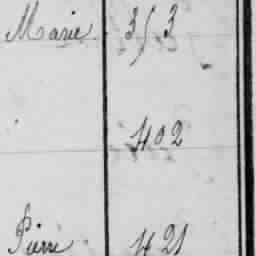 Marie 353
402
Pierre 421